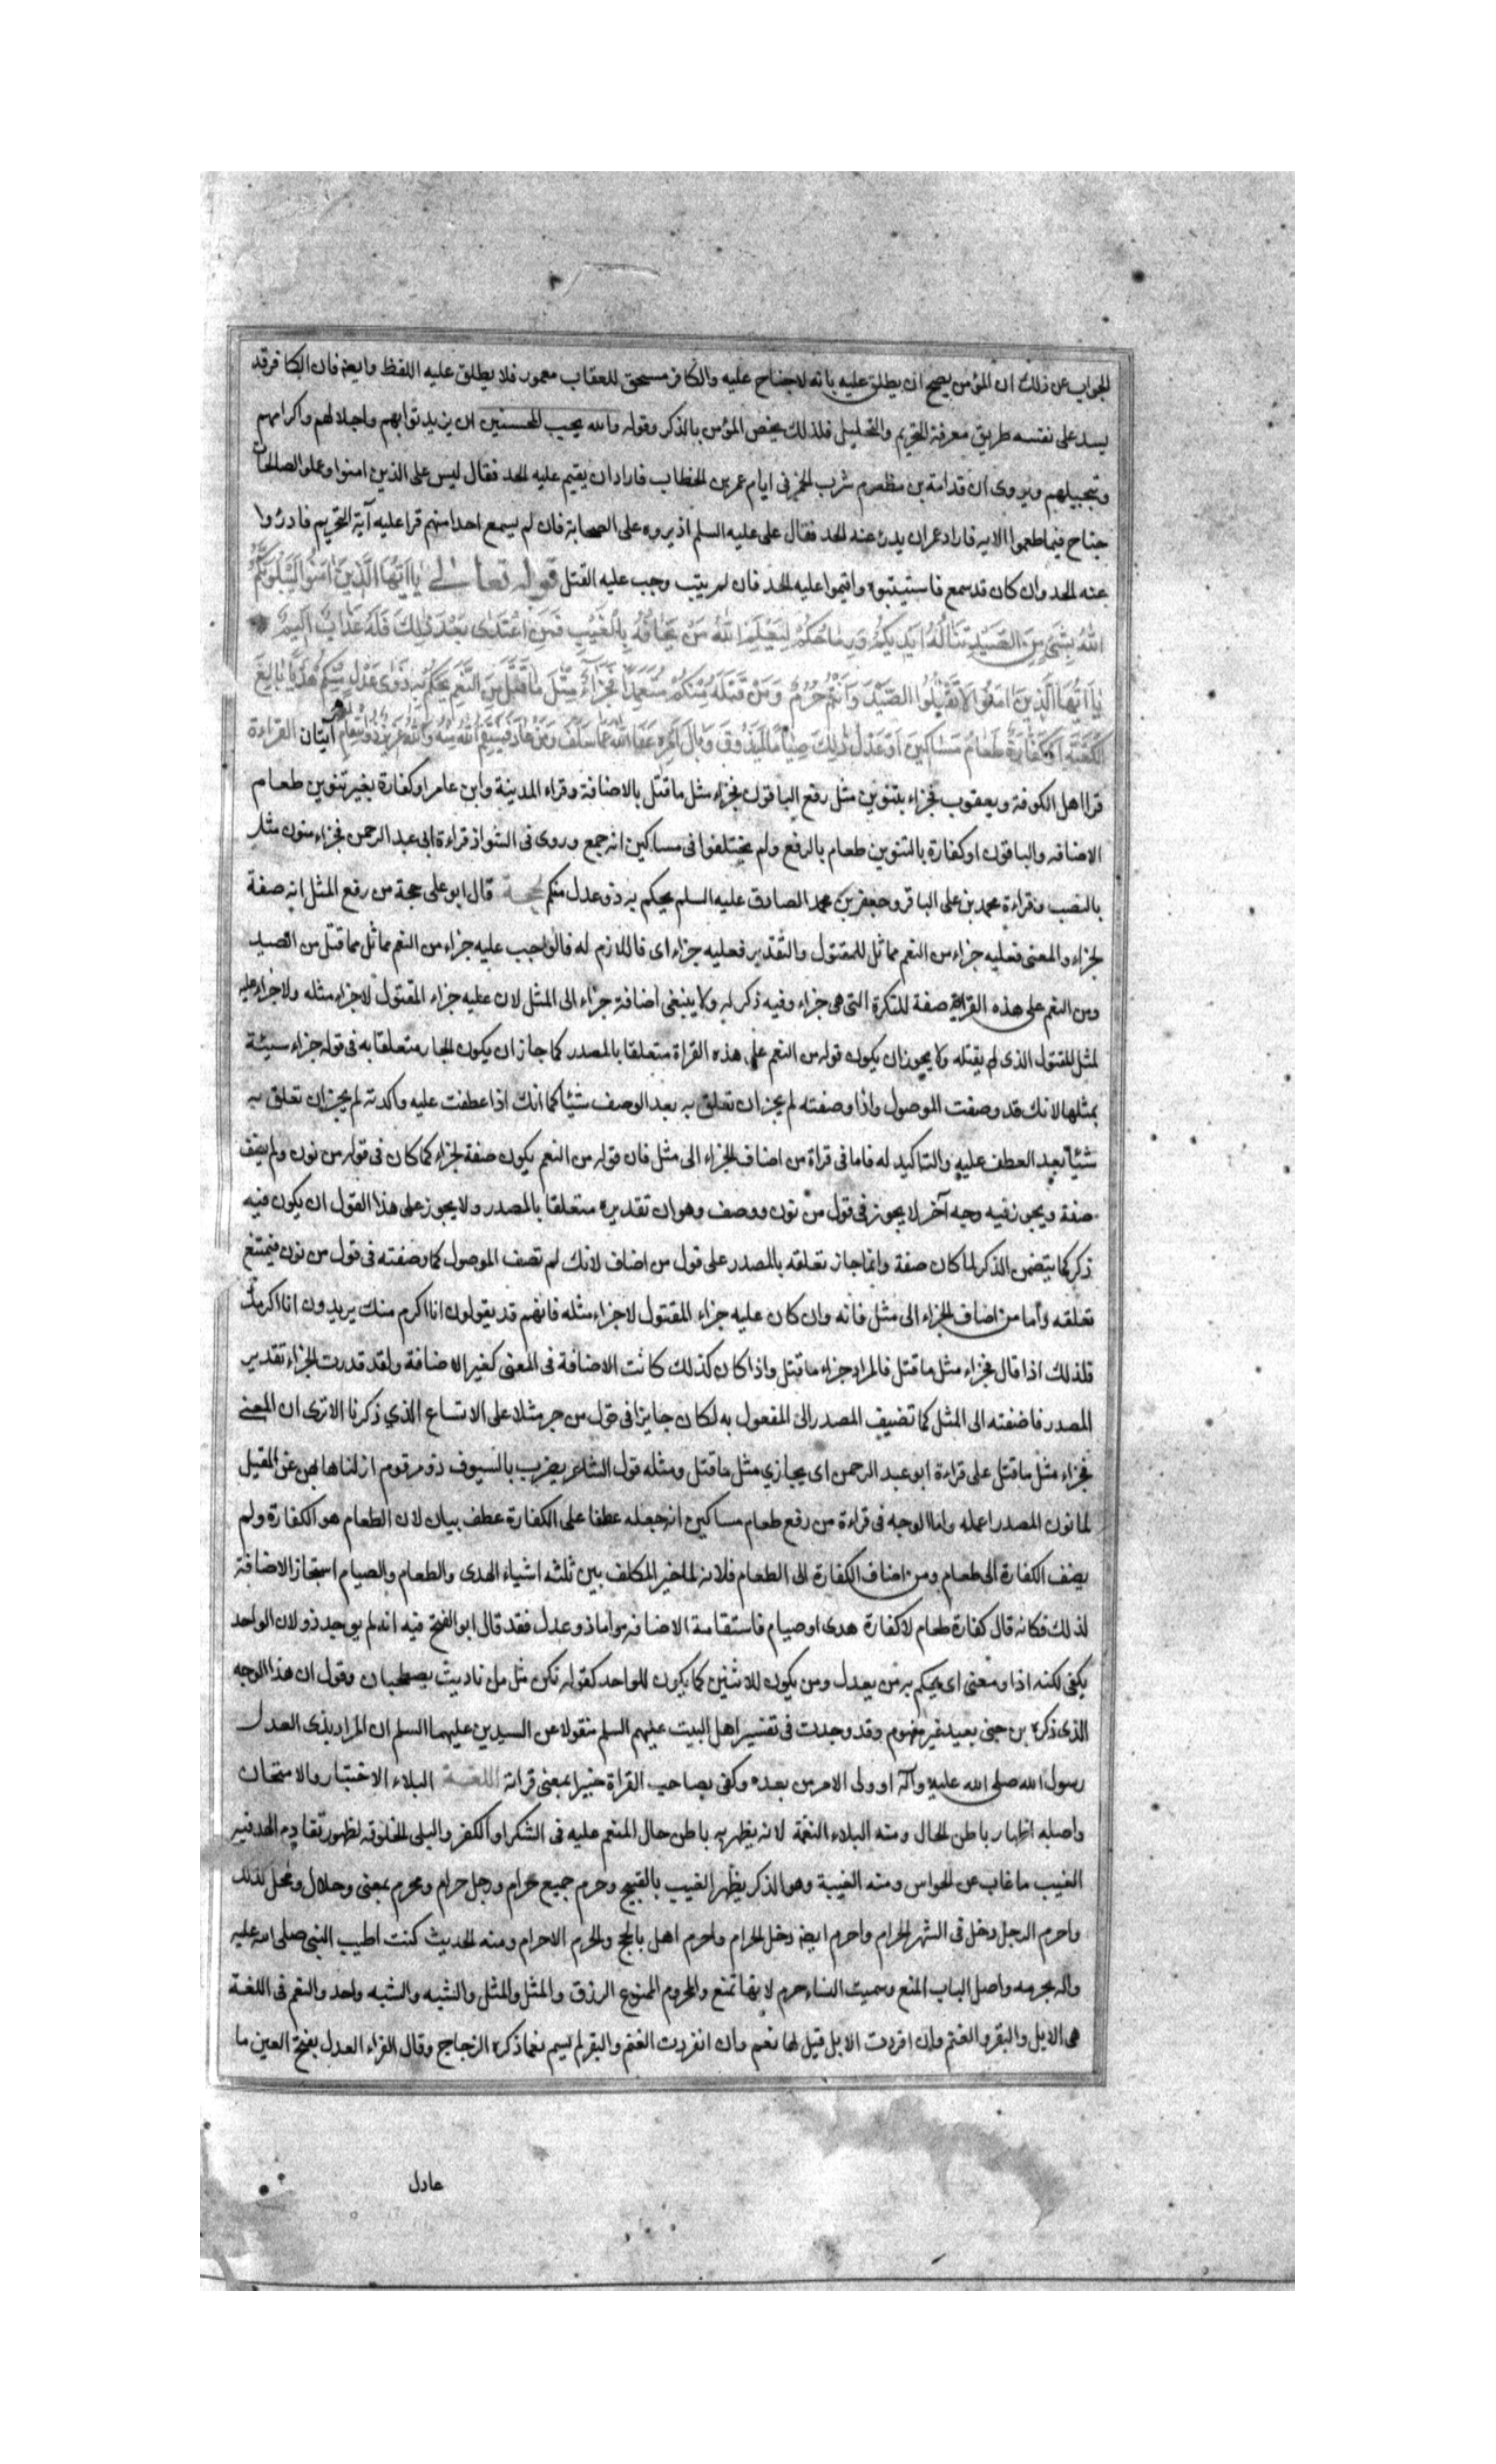 الجواب عن ذلك ان المؤمن يصح ان يطلق عليه بانه لا جناح عليه والكافر مستحق للعقاب معمور فلا يطلق عليه اللفظ وايضا فان الكافر قد
يسد على نفسه طريق معرفة التحريم والتحليل فلذلك يخص المؤمن بالذكر وقوله والله يحب المحسنين ان يزيد ثوابهم واجلالهم واكرامهم
وتبجيلهم ويروى ان قدامة بن مظعون شرب الخمر فى ايام عمر بن الخطاب فاراد ان يقيم عليه الحد فقال ليس على الذين امنوا وعملوا الصالحات
جناح فيما طعموا الايه فاراد عمر ان يدرء عنه الحد فقال على عليه السلم اذيروه على الصحابة فان لم يسمع احدا منهم قرا عليه آية التحريم فادرءوا
عنه الحد وان كان قد سمع فاستيتبوه واقيموا عليه الحد فان لم يتب وجب عليه القتل قوله تعالى يا ايها الذين امنوا ليبلونكم
الله بشئ من الصيد تناله ايديكم ورماحكم ليعلم الله من يخافه بالغيب فمن اعتدى بعد ذلك فله عذاب اليم
يا ايها الذين امنوا لا تقتلوا الصيد وانتم حرم ومن قتله منكم متعمدا فجزاء مثل ما قتل من النعم يحكم به ذوا عدل منكم هديا بالغ
الكعبة او كفارة طعام مساكين او عدل ذلك صياما ليذوق وبال امره عفا الله عما سلف ومن عاد فينتقم الله منه والله عزيز ذو انتقام آيتان القراءة
قرا اهل الكوفة ويعقوب فجزاء بتنوين مثل رفع الباقون فجزاء مثل ما قتل بالاضافة وقراء المدينة وابن عامر او كفارة بغير تنوين طعام
الاضافه والباقون او كفارة بالتنوين طعام بالرفع ولم يختلفوا فى مساكين انه جمع وروى فى الشواذ قراءة ابى عبد الرحمن فجزاء منون مثل
بالنصب وقراءة محمد بن على الباقر وجعفر بن محمد الصادق عليه السلم يحكم به ذو عدل منكم الحجة قال ابو على حجة من رفع المثل انه صفة
لجزاء والمعنى فعليه جزاء من النعم مماثل للمقتول والتقدير فعليه جزاء اى فاللازم له فالواجب عليه جزاء من النعم مماثل مما قتل من الصيد
ومن النعم على هذه القراءة صفة للنكرة التى هى جزاء وفيه ذكر له ولا ينبغى اضافة جزاء الى المثل لان عليه جزاء المقتول لا جزاء مثله ولا جزاء عليه
لمثل المقتول الذى لم يقتله ولا يجوز ان يكون قوله من النعم على هذه القراة متعلقا بالمصدر كما جاز ان يكون الجار متعلقا به فى قوله جزاء سيئة
بمثلها لانك قد وصفت الموصول واذا وصفته لم يجز ان تعلق به بعد الوصف شيئا كما انك اذا عطفت عليه واكدته لم يجز ان تعلق به
شيئا بعد العطف عليه والتاكيد له فاما فى قراة من اضاف الجزاء الى مثل فان قوله من النعم يكون صفة لجزاء كما كان فى قوله من نون ولم يضف
صفة ويجوز فيه وجه آخر لا يجوز فى قول من نون ووصف وهو ان تقديره متعلقا بالمصدر ولا يجوز على هذا القول ان يكون فيه
ذكر كما يتضمن الذكر لما كان صفة وانما جاز تعلقه بالمصدر على قول من اضاف لانك لم تصف الموصول كما وصفته فى قول من نون فيمتنع
تعلقه واما من اضاف الجزاء الى مثل فانه وان كان عليه جزاء المقتول لا جزاء مثله فانهم قد يقولون انا اكرم منك يريدون انا اكرمك
فلذلك اذا قال فجزاء مثل ما قتل فالمراد جزاء ما قتل واذا كان كذلك كانت الاضافة فى المعنى كغير الاضافة ولقد قدرت الجزاء تقدير
المصدر فاضفته الى المثل كما تضيف المصدر الى المفعول به لكان جايزا فى قول من جر مثلا على الاتساع الذي ذكرنا الا ترى ان المعنى
فجزاء مثل ما قتل على قراءة ابو عبد الرحمن اى يجازي مثل ما قتل ومثله قول الشاعر بضرب بالسيوف ذو مرقوم ازلناهابهن عن المقيل
لما نون المصدر اعمله واما الوجه فى قراءة من رفع طعام مساكين انه جعله عطفا على الكفارة عطف بيان لان الطعام هو الكفارة ولم
يضف الكفارة الى طعام ومن اضاف الكفارة الى الطعام فلانه لما خير المكلف بين ثلثه اشياء الهدى والطعام والصيام استجاز الاضافة
لذلك فكانه قال كفارة طعام لا كفارة هدى او صيام فاستقامة الاضافه واما ذو عدل فقد قال ابو الفتح فيه انه لم يوجد ذو لان الواحد
يكفى لكنه اذا ومعنى اى يحكم به من يعدل ومن يكون للاثنين كما يكون للواحد كقوله تكن مثل من ناديت يصطحبان وقول ان هذا الوجه
الذى ذكره بن جنى بعيد غير مفهوم وقد وجدت فى تفسير اهل البيت عليهم السلم منقولا عن السيدين عليهما السلم ان المراد بذى العدل
رسول الله صلى الله عليه وآله او ولى الامر من بعده وكفى بصاحب القراة خبيرا بمعنى قراته اللغة البلاء الاختبار والامتحان
واصله اظهار باطن الحال ومنه البلاء النعمة لانه يظهر به باطن حال المنعم عليه فى الشكر او الكفر والبلى الخلوقه لظهور تقادم العهد فيه
الغيب ما غاب عن الحواس ومنه الغيبة وهو الذكر بظهر الغيب بالقبيح وحرم جميع حرام ورجل حرام ومحرم بمعنى وحلال ومحل لذلك
واحرم الرجل دخل فى الشهر الحرام واحرم ايضا دخل الحرام واحرم اهل بالحج والحرم الاحرام ومنه الحديث كنت اطيب النبى صلى الله عليه
واله بحرمه واصل الباب المنع وسميت النساء حرم لانها تمنع والمحروم الممنوع الرزق والمثل والمثل والشبه والشبه واحد والنعم فى اللغة
هى الابل والبقر والغنم وان افردت الابل قيل لها نعم وان انفردت الغنم والبقر لم يسم نعما ذكره الزجاج وقال الفراء العدل بفتح العين ما
عادل